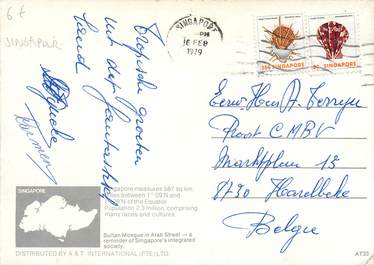 6 f
SINGAPUR
SINGAPORE
PM
16 FEB
1979
Tropische groeten
uit de
35c SINGAPORE
5c SINGAPORE
Eerw. Heer A.
Proost C.M.B.V
Marktplein 13
8730 Harelbeke
Belgie
SINGAPORE
Singapore measures 587 sq. km.
lies between 1° 09'N and
1° 29'N of the Equator.
Population 2.3 million, comprising
many races and cultures.
Sultan Mosque in Arab Street — a
reminder of Singapore's integrated
society.
DISTRIBUTED BY A & T INTERNATIONAL (PTE) LTD.
AT33